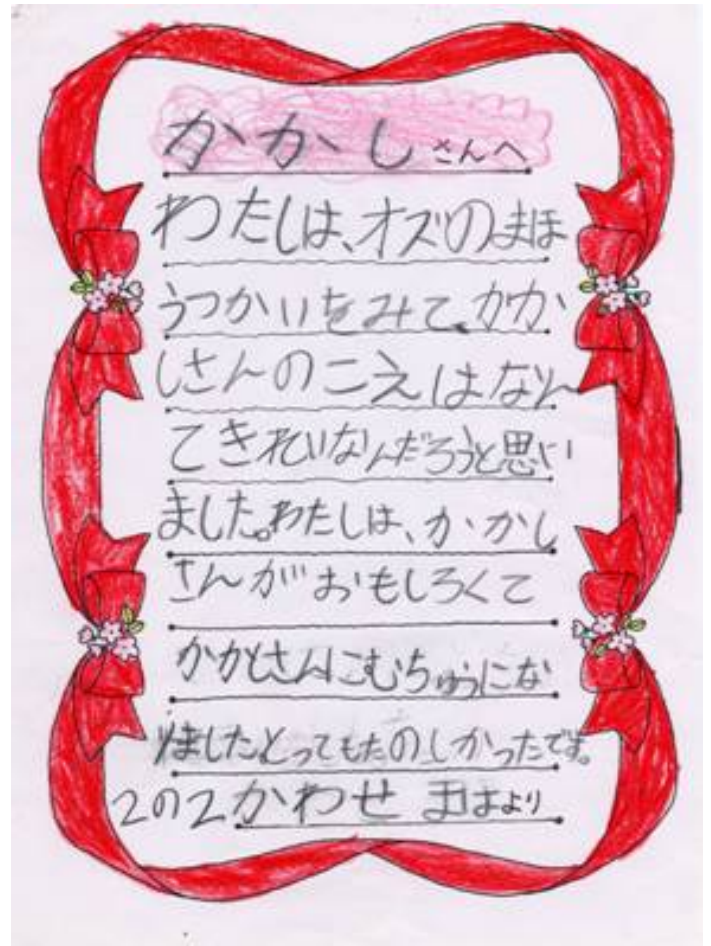 かかしさんへ
わたしは、オズのまほ
うつかいをみて、かか
しさんのこえはなん
てきれいなんだろうと思い
ました。わたしは、かかし
さんがおもしろくて
かかしさんにむちゅうにな
りました。とってもたのしかったです。
2の2かわせ より